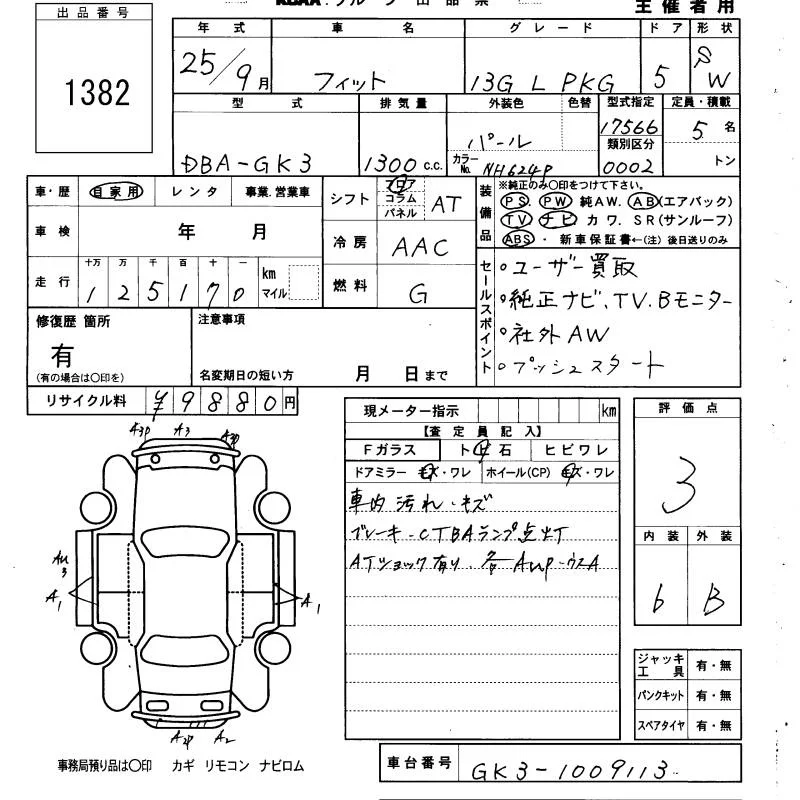 出品番号
1382
主催者用
年式 車名 グレード ドア 形状
25/9月 フィット 13G L PKG 5 SW
型式 排気量 外装色 色替 型式指定 定員・積載
DBA-GK3 1300c.c. パール 17566 5名
カラーNo. NH624P 類別区分 0002 トン
車・歴 自家用 レンタ 事業.営業車
車検 年 月
走行 十万 万 千 百 十 一 km マイル
1 2 5 1 7 0
シフト フロア コラム パネル AT
冷房 AAC
燃料 G
装備品 ※純正のみ〇印をつけて下さい。
PS. PW 純AW. AB(エアバック)
TV ナビ カワ. SR(サンルーフ)
ABS ・ 新車保証書←(注) 後日送りのみ
セールスポイント
○ユーザー買取
○純正ナビ、TV.Bモニター
○社外AW
○プッシュスタート
修復歴 箇所
有
(有の場合は〇印を)
注意事項
名変期日の短い方 月 日まで
リサイクル料 ¥9880円
現メーター指示 km
【査定員記入】
Fガラス ト 石 ヒビワレ
ドアミラー キズ・ワレ ホイール(CP) キズ・ワレ
車内汚れ・キズ
ブレーキ・CTBAランプ点灯
ATショック有り.
評価点
3
内装 外装
6 B
A3 A2P A2
A1 A1
ジャッキ工具 有・無
パンクキット 有・無
スペアタイヤ 有・無
事務局預り品は〇印 カギ リモコン ナビロム
車台番号 GK3-1009113